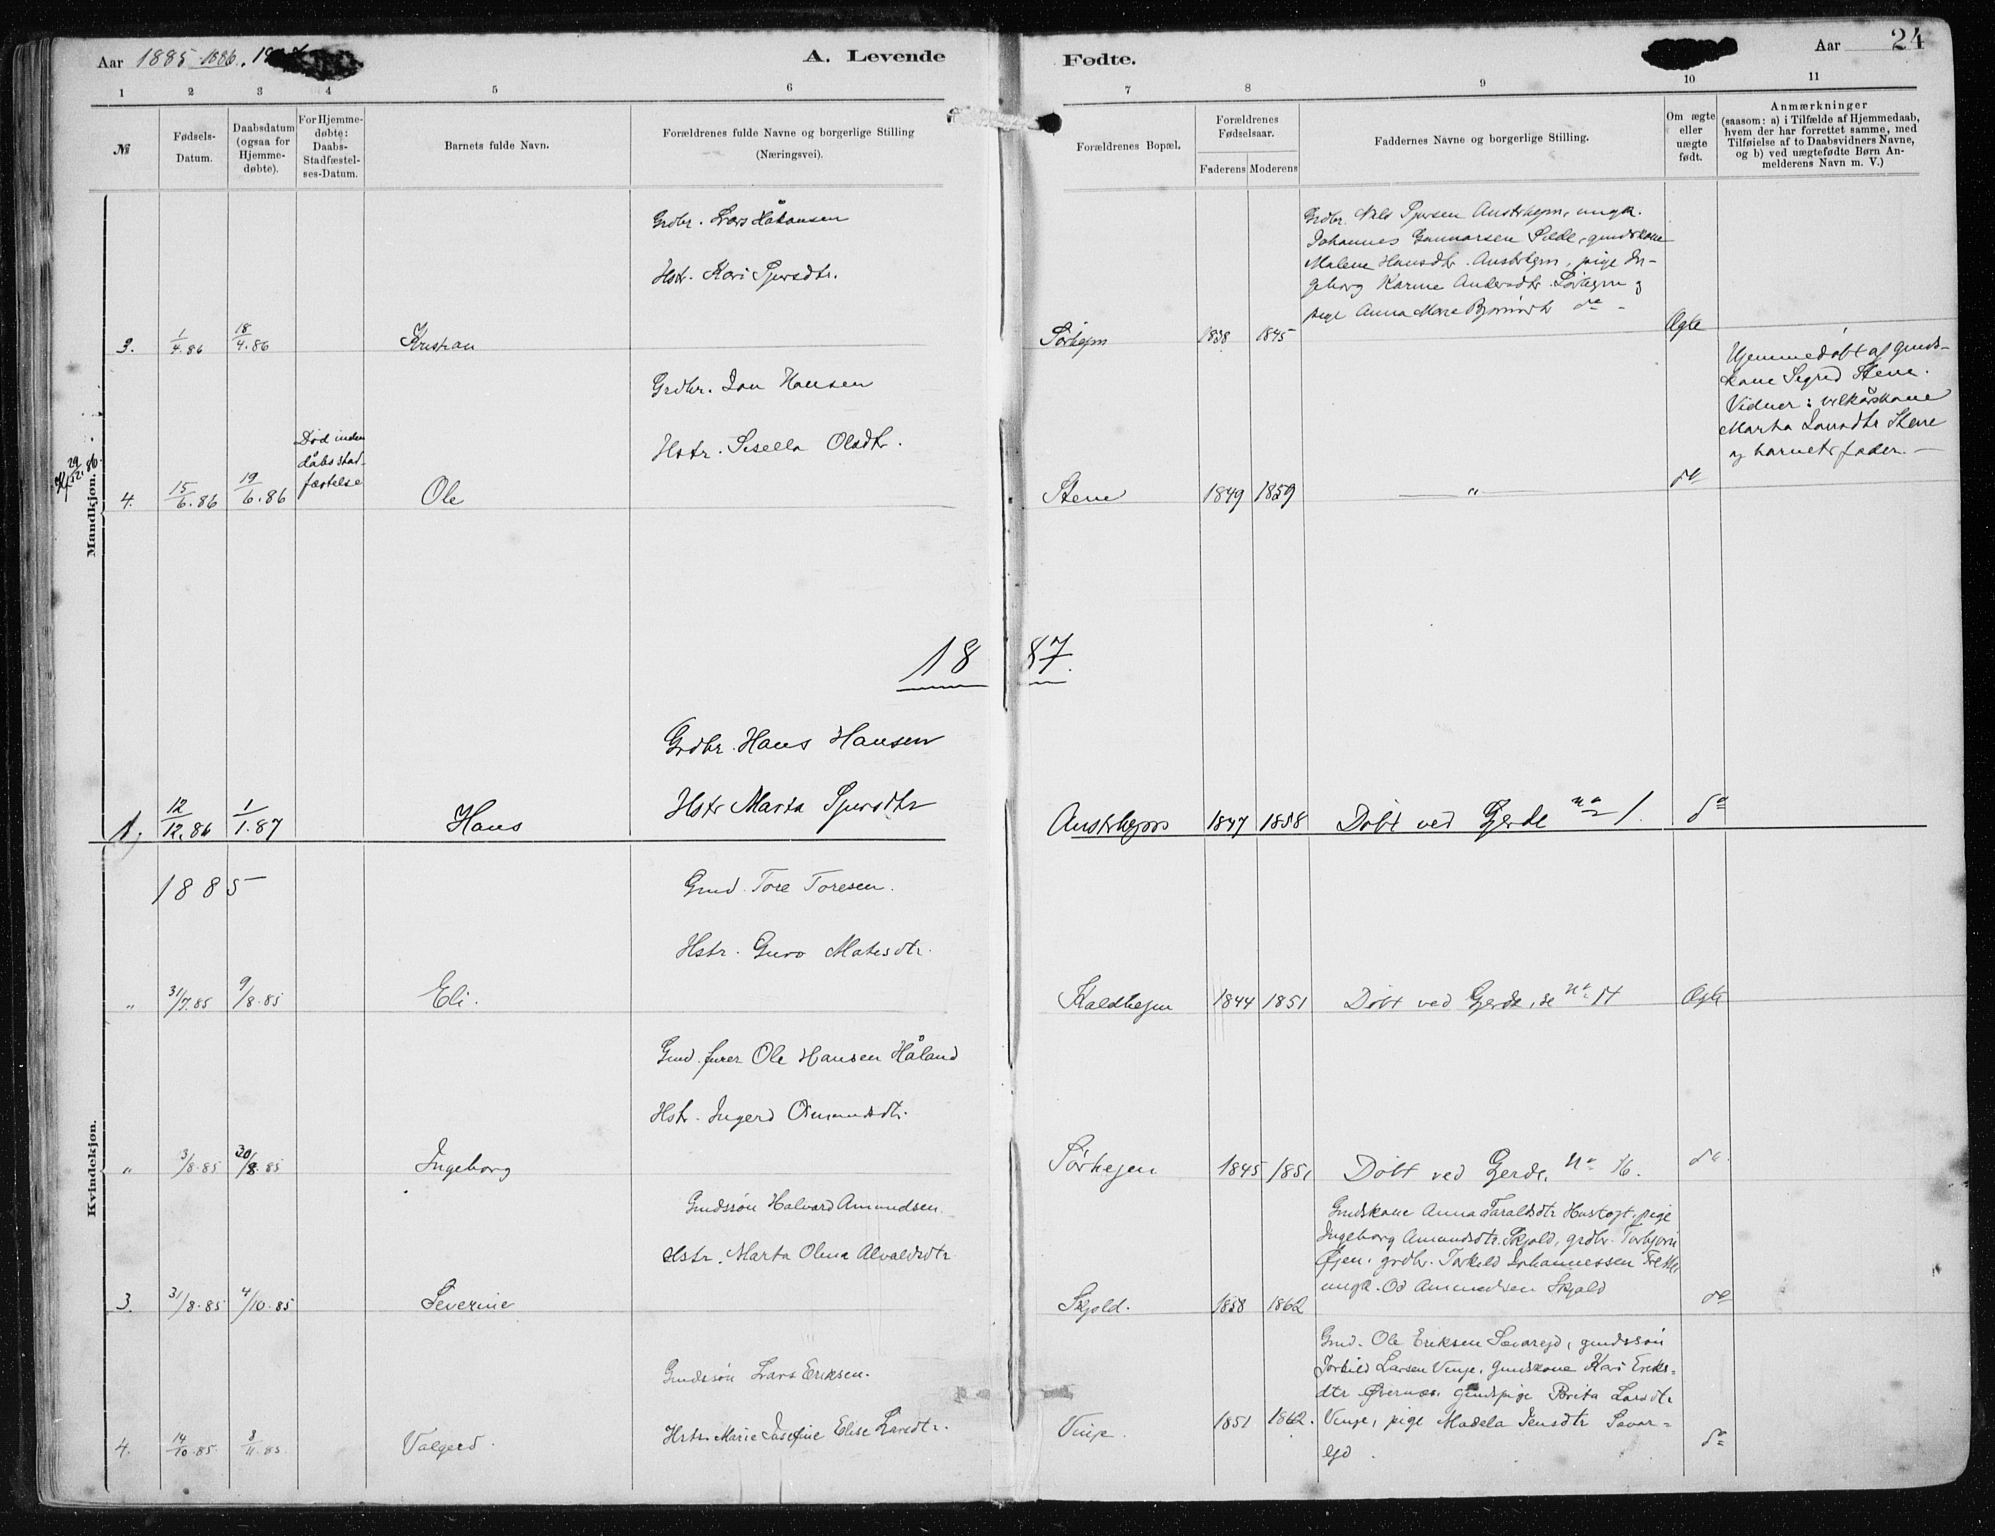 Aar 1885-1886.
A. Levende
Fødte.
Aar
24
1 2 3 4 5 6
7 8 9 10 11
№
Fødsels-Datum.
Daabsdatum (ogsaa for Hjemme-døbte).
For Hjemme-døbte: Daabs-Stadfæstel-ses-Datum.
Barnets fulde Navn.
Forældrenes fulde Navne og borgerlige Stilling (Næringsvei).
Forældrenes Bopæl.
Forældrenes Fødselsaar.
Faderens Moderens
Faddernes Navne og borgerlige Stilling.
Om ægte eller uægte født.
Anmærkninger
(saasom: a) i Tilfælde af Hjemmedaab,
hvem der har forrettet samme, med
Tilføielse af to Daabsvidners Navne,
og b) ved uægtefødte Børn An-
melderens Navn m. V.)
Mandkjøn.
Grdbr. Lars Håkonsen
Hstr. Kari Sjursdtr.
Grdbr. Nils Sjursen Austrhejm, ungk.
Johannes Gunnarsen Silde, gmdskone
Malene Hansdtr. Austrhejm, pige In-
geborg Karine Andersdtr. Sørhejm og
pige Anna Marie Bjørnsdtr do -
3. 1/4.86 18/4.86 Kristian Sørhejm 1838 1845 Ægte
Grdbr. Jon Hansen
Hstr. Sisella Olsdtr.
Død inden
dåbsstad-
fæstelse
Hjemmedøbt af gmds-
kone Sigrid Stene.
Vidner: vilkårskone
Marta Larsdtr Stene
og barnets fader. —
4. 15/6.86 19/6.86 Ole Stene 1849 1859 — " — do
1887.
Grdbr. Hans Hansen
Hstr Marta Sjursdtr
1. 12/12.86 1/1.87 Hans Austrhejm 1847 1858 Døbt ved Gjerde no 1. do
Kvindekjøn.
1885
Gmd. Tore Toresen.
Hstr. Guro Matesdtr.
" 31/7.85 9/8.85 Eli. Kaldhejm 1844 1851 Døbt ved Gjerde, se no 14 Ægte
Gmd. furer Ole Hansen Håland
Hstr. Ingerd Osmundsdtr.
" 3/8.85 30/8.85 Ingeborg Sørhejm 1845 1851 Døbt ved Gjerde, no 16. do
Gmdssøn Halvard Amundsen.
Hstr. Marta Olena Alvaldsdtr
Gmdskone Anna Taraldsdtr Hustoft, pige
Ingeborg Amundsdtr Skjold, grdbr. Torbjørn
Øjen, grdbr. Torkild Johannessen Frette,
ungk. Od Ammundsen Skjold
3. 31/8.85 4/10.85 Severine Skjold. 1858 1862 do
Gmdssøn Lars Eriksen.
Hstr. Marie Josefine Elise Larsdtr.
Gmd. Ole Eriksen Sævarejd, gmdssøn
Torkild Larsen Vinje, gmdskone Kari Eriks-
dtr Øvernæs, gmdspige Brita Larsdtr
Vinje, pige Madela Jensdtr Sævar-
ejd.
4. 14/10.85 8/11.85 Valgerd. Vinje. 1851 1862. do